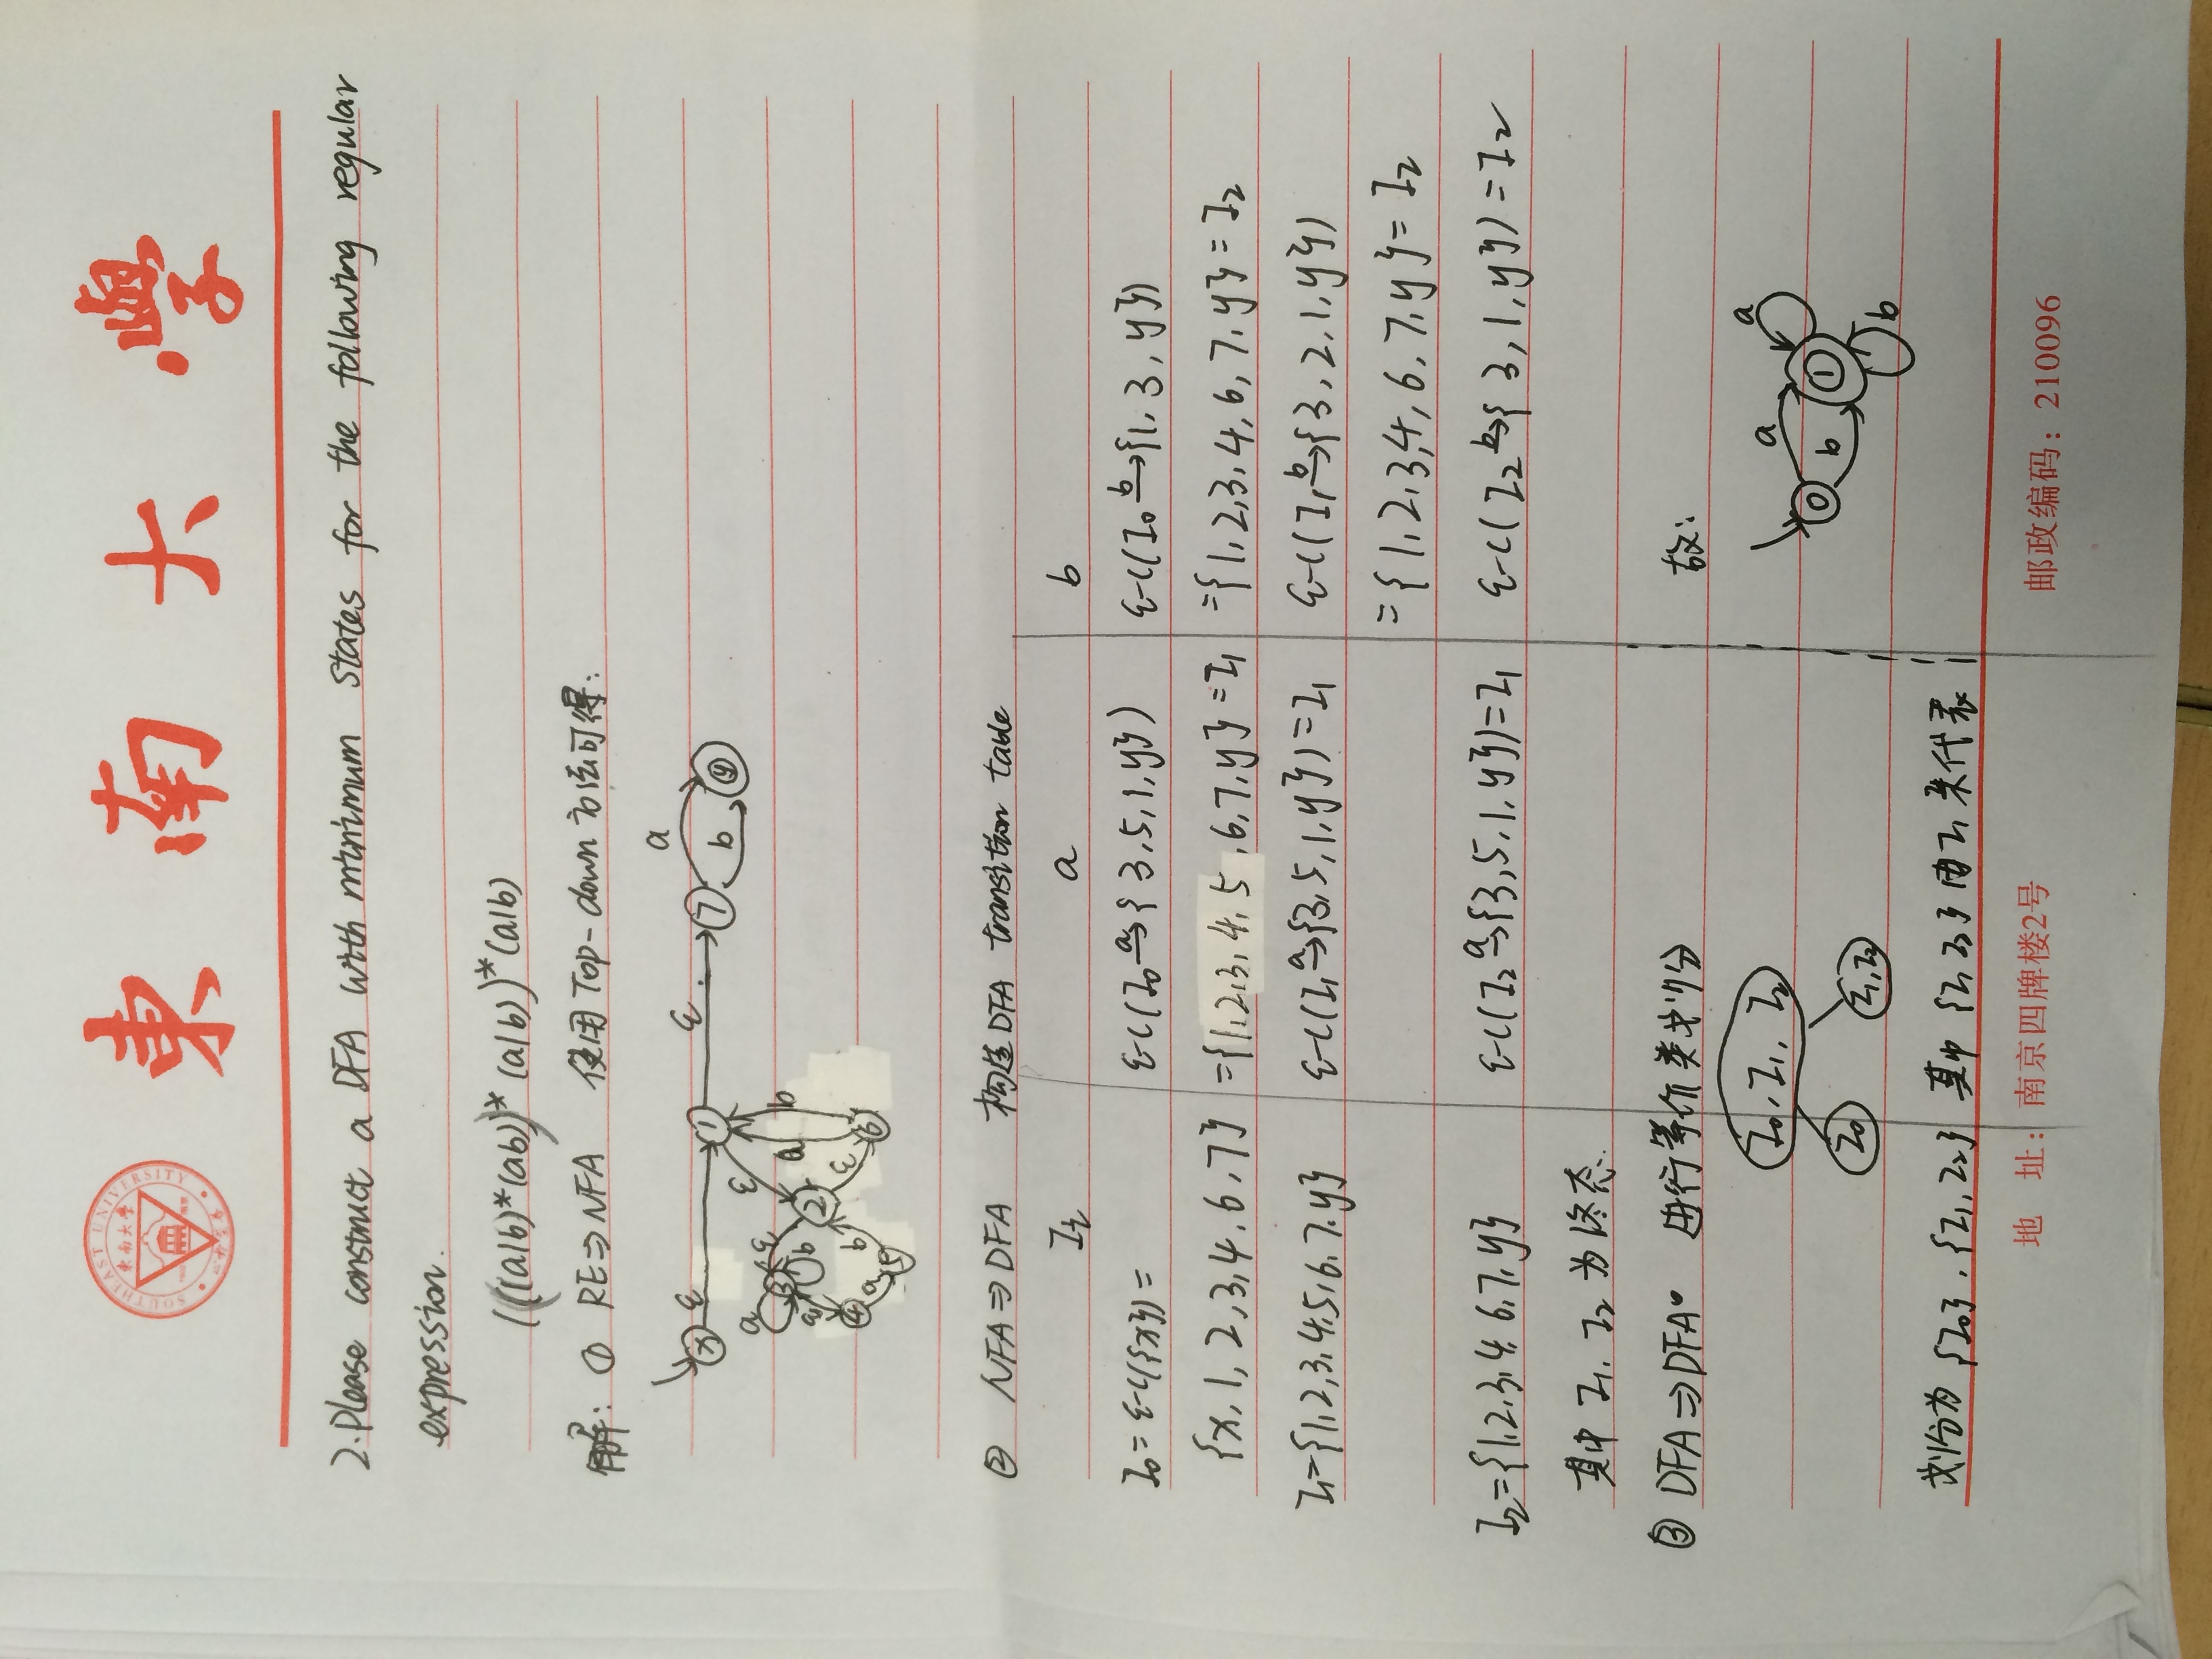 SOUTHEAST UNIVERSITY
東南大學
東南大學
2.Please construct a DFA with minimum states for the following regular
expression.
(((a|b)*(ab))*(a|b))*(a|b)
解: ① RE⇒NFA 使用Top-down方法可得:
x ε 1 ε 7 a b y
ε a b
a 3 ε b 2 ε
4 a 5 b 6
② NFA⇒DFA 构造DFA transition table
It a b
I0=ε-C({x})= ε-C(I0 a→{3,5,1,y}) ε-C(I0 b→{1,3,y})
{x,1,2,3,4,6,7} ={1,2,3,4,5,6,7,y}=I1 ={1,2,3,4,6,7,y}=I2
I1={1,2,3,4,5,6,7,y} ε-C(I1 a→{3,5,1,y})=I1 ε-C(I1 b→{3,2,1,y})
={1,2,3,4,6,7,y}=I2
I2={1,2,3,4,6,7,y} ε-C(I2 a→{3,5,1,y})=I1 ε-C(I2 b→{3,1,y})=I2
其中 I1, I2 为终态.
③ DFA⇒DFA 进行等价类划分 故:
I0, I1, I2
I0 I1,I2
0 a b 1 a b
划分为 {I0}, {I1,I2} 其中 {I1 I2} 由I1来代表
地 址: 南京四牌楼2号 邮政编码: 210096